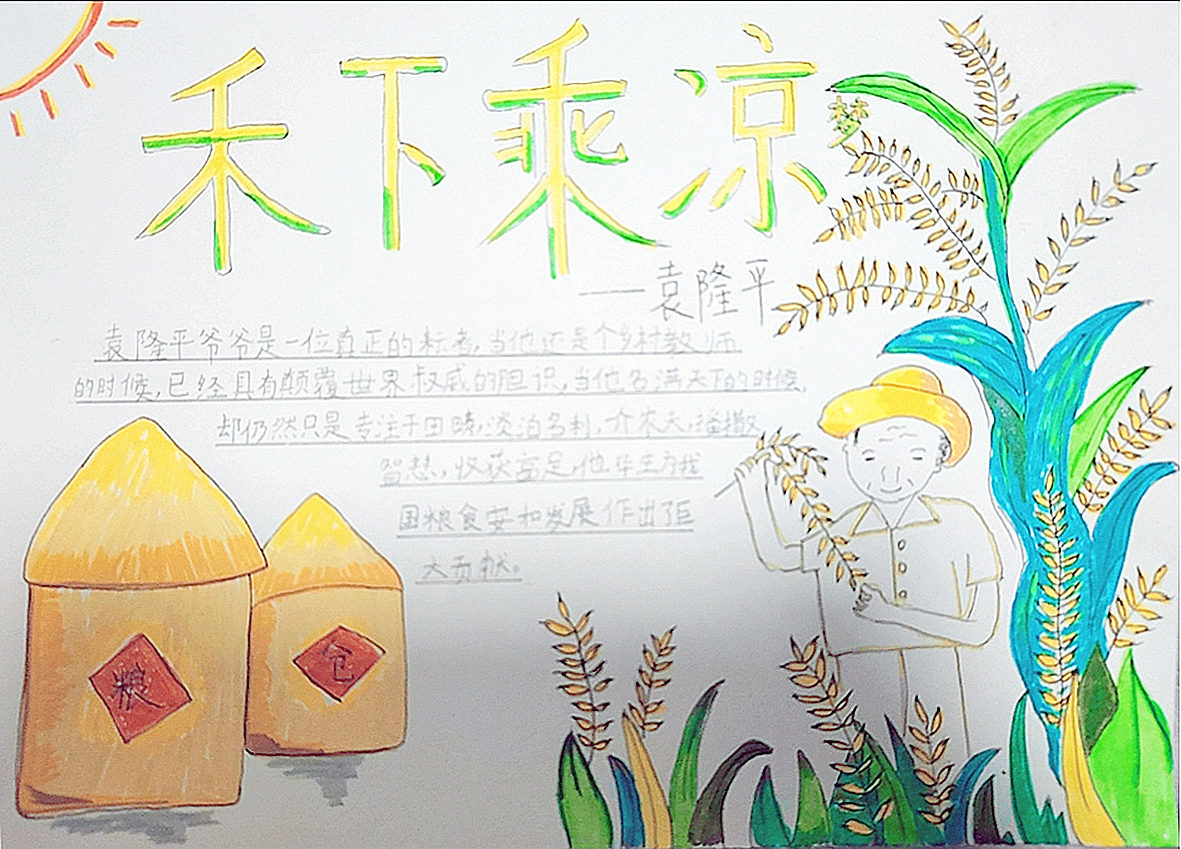 禾下乘凉梦
——袁隆平
袁隆平爷爷是一位真正的耘者,当他还是个乡村教师
的时候,已经具有颠覆世界权威的胆识,当他名满天下的时候,
却仍然只是专注于田畴,淡泊名利,介农夫,播撒
智慧,收获富足,他毕生为我
国粮食安和发展作出了巨
大贡献。
粮
仓